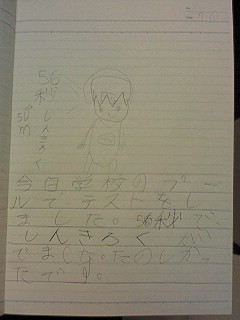 56秒しんきろく
50m
今日学校のプー
ルでテストをし
ました。56秒で、
しんきろくが
でました。たのしかっ
たです。